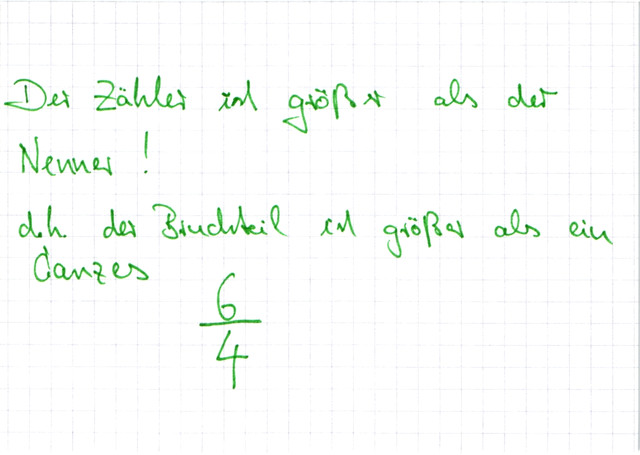 Der Zähler ist größer als der
Nenner!
d.h. der Bruchteil ist größer als ein
Ganzes
6
4